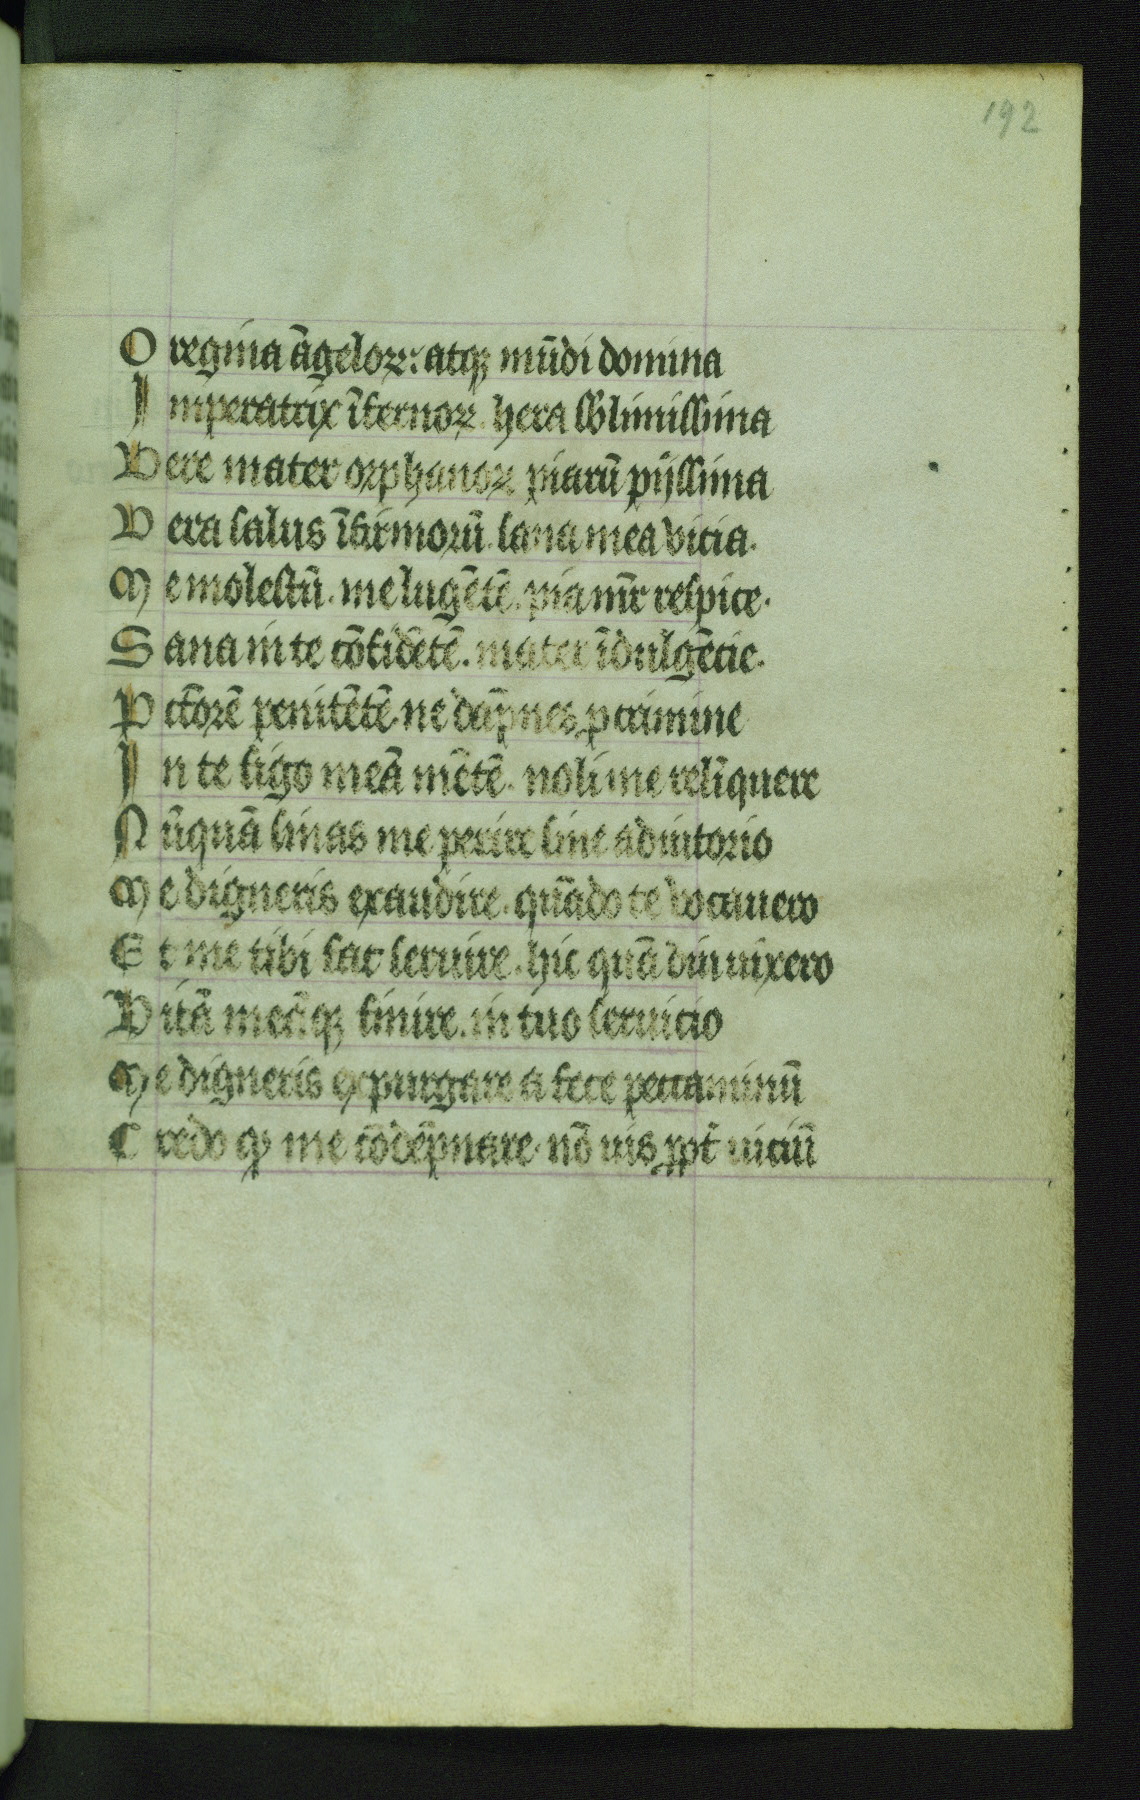 192
O regina āgeloꝝ: atqꝫ mūdi domina
I mperatrix īfernoꝝ. hera sb̄limissima
Vere mater orphanoꝝ piarū pijssima
V era salus īfirmorū. sana mea vicia.
M e molestū. me lugētē. pia mr̄ respice.
S ana in te cōfidētē. mater īdulgēcie.
P ctōrē penitētē. ne dāpnes ꝓ crimine
I n te figo meā mētē. noli me relīquere
N ūquā sinas me perire sine adiutorio
M e digneris exaudire. quādo te vocauero
E t me tibi fac seruire. hic quādiu uixero
V itā meā qꝫ finire. in tuo seruicio
M e digneris expurgare a fece peccaminū
C redo ꝙ me cōdēpnare. nō uis ꝓpt̄ uiciū